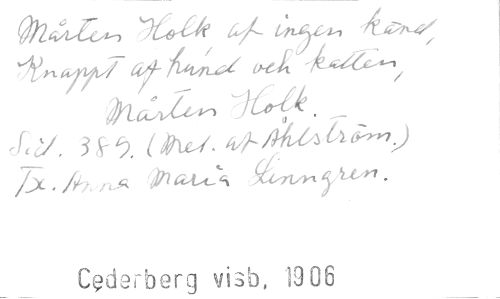 Mårten Holk af ingen känd,
Knappt af hund och katten,
Mårten Holk.
Sid. 389. (Mel. af Åhlström.)
Tx. Anna Maria Linngren.
Cederberg visb, 1906